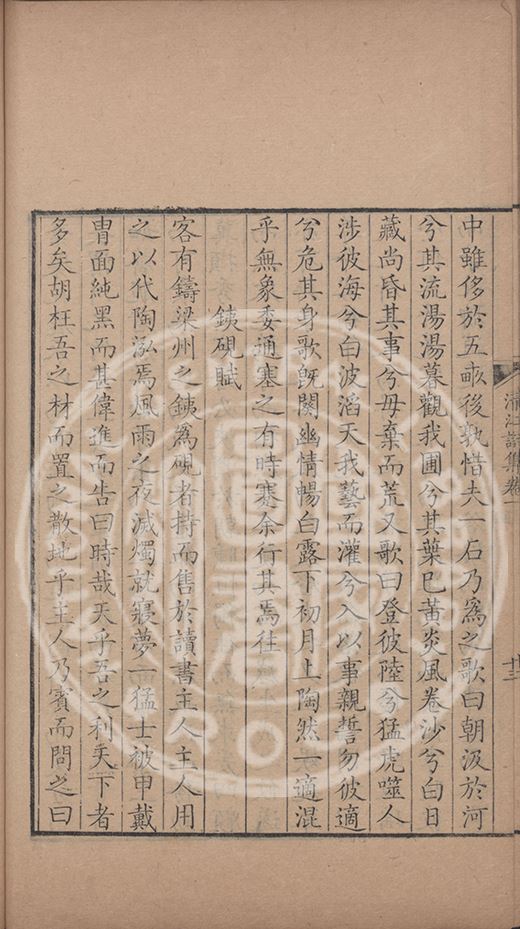 清江詩集卷一
十三
中雖侈於五畝後孰惜夫一石乃爲之歌曰朝汲於河
兮其流湯湯暮觀我圃兮其葉巳黃炎風卷沙兮白日
藏尚昏其事兮毋棄而荒又歌曰登彼陸兮猛虎噬人
涉彼海兮白波滔天我藝而灌兮入以事親誓勿彼適
兮危其身歌既闋幽情暢白露下初月上陶然一適混
乎無象委通塞之有時蹇余行其焉往
鐵硯賦
客有鑄梁州之鐵爲硯者持而售於讀書主人主人用
之以代陶泓焉風雨之夜滅燭就寢夢一猛士被甲戴
冑面純黑而甚偉進而告曰時哉天乎吾之利矣下者
多矣胡枉吾之材而置之散地乎主人乃賓而問之曰